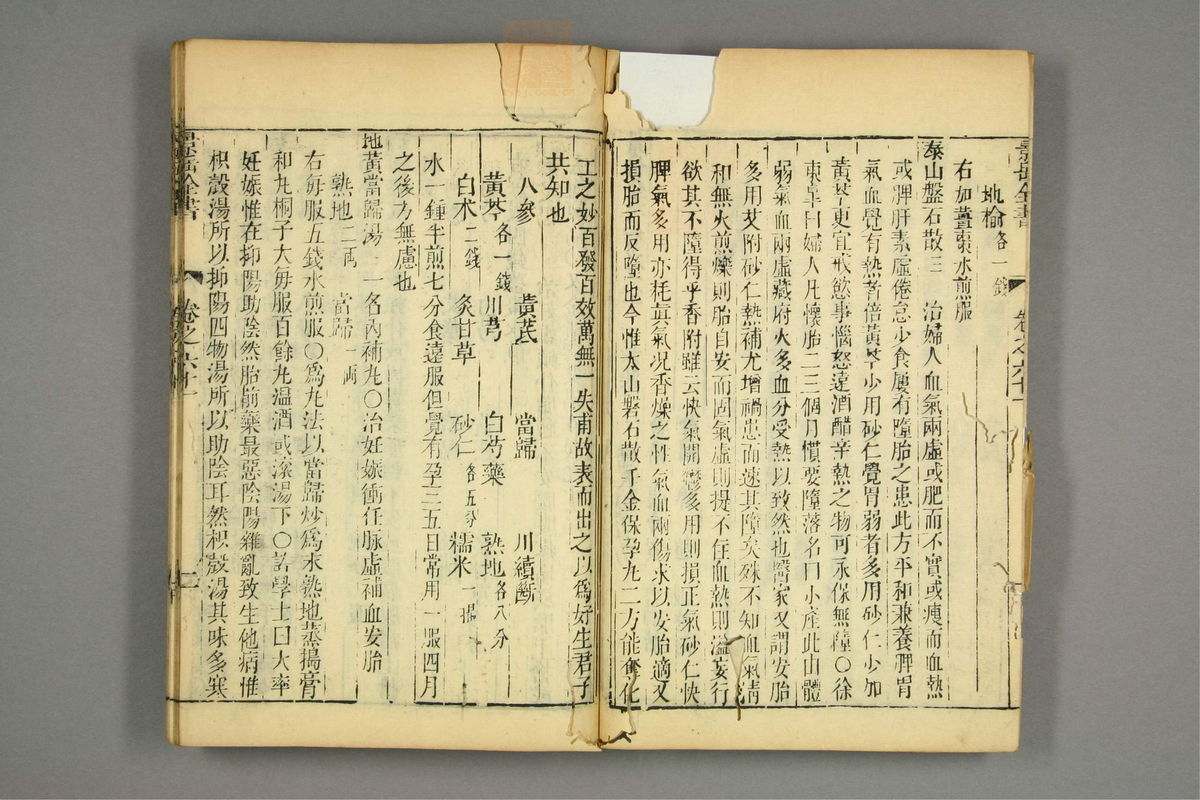 地榆各一錢
右加薑棗水煎服
泰山盤石散三　治婦人血氣兩虛或肥而不實或瘦而血熱
或脾肝素虛倦怠少食屢有墮胎之患此方平和兼養脾胃
氣血覺有熱者倍黃芩少用砂仁覺胃弱者多用砂仁少加
黃芩更宜戒慾事惱怒遠酒醋辛熱之物可永保無墮○徐
東皋曰婦人凡懷胎二三個月慣要墮落名曰小產此由體
弱氣血兩虛藏府火多血分受熱以致然也醫家又謂安胎
多用艾附砂仁熱補尤增禍患而速其墮矣殊不知血氣清
和無火煎爍則胎自安而固氣虛則提不住血熱則溢妄行
欲其不墮得乎香附雖云快氣開鬱多用則損正氣砂仁快
脾氣多用亦耗真氣况香燥之性氣血兩傷求以安胎適又
損胎而反墮也今惟太山磐石散千金保孕丸二方能奪化
工之妙百發百效萬無一失甫故表而出之以爲好生君子
共知也
人參　黃茋　當歸　川續斷
黃芩各一錢　川芎　白芍藥　熟地各八分
白术二錢　炙甘草　砂仁各五分　糯米一撮
水一鍾半煎七分食遠服但覺有孕三五日常用一服四月
之後方無慮也
地黃當歸湯　一名內補丸○治妊娠衝任脉虛補血安胎
熟地二兩　當歸一兩
右每服五錢水煎服○爲丸法以當歸炒爲末熟地蒸搗膏
和丸桐子大每服百餘丸温酒或滚湯下○許學士曰大率
妊娠惟在抑陽助陰然胎前藥最惡陰陽雜亂致生他病惟
枳殼湯所以抑陽四物湯所以助陰耳然枳殼湯其味多寒
景岳全書
卷之六十一